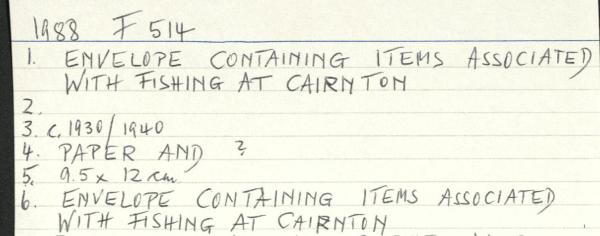 1988 F 514
1. ENVELOPE CONTAINING ITEMS ASSOCIATED
WITH FISHING AT CAIRNTON
2.
3. c. 1930/1940
4. PAPER AND ?
5. 9.5 x 12 cm
6. ENVELOPE CONTAINING ITEMS ASSOCIATED
WITH FISHING AT CAIRNTON